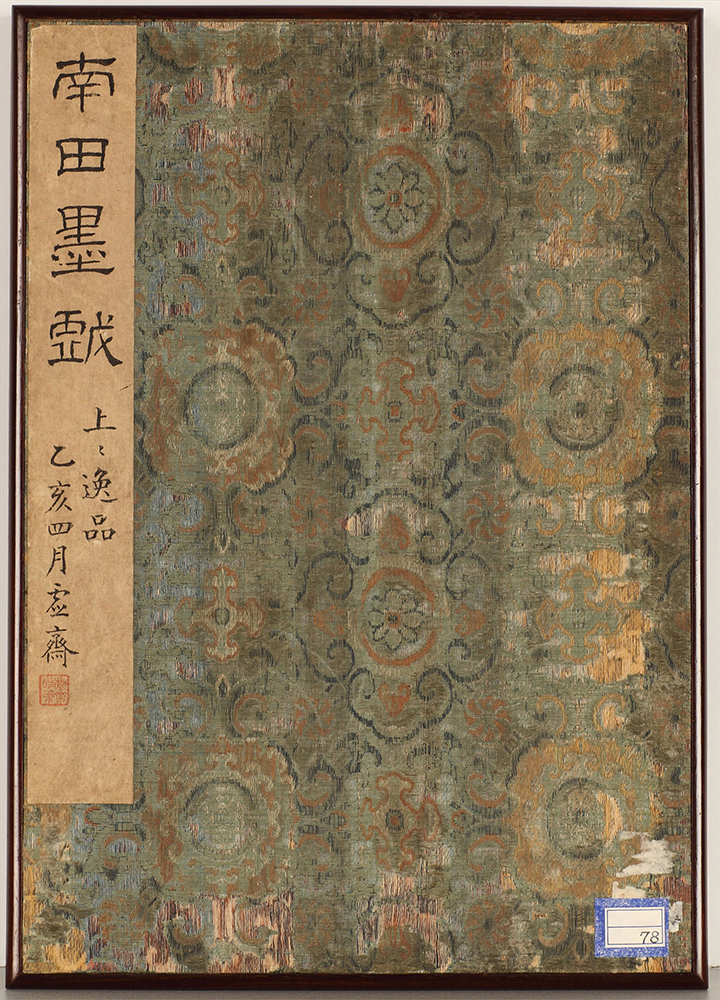 南田墨戲
上〻逸品
乙亥四月虛齋
78